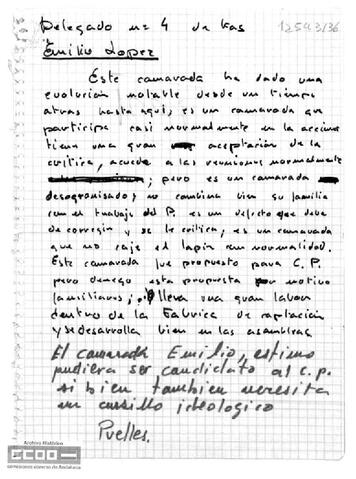 Delegado nº 4 de Kas
12543/36
Emilio Lopez
Este camarada ha dado una
evolución notable desde un tiempo
atras hasta aqui, es un camarada que
participa casi normalmente en la accion
tiene una gran aceptación de la
critica, acude a las reuniones normalmente
; pero es un camarada
desogranisado; no combina bien su familia
con el trabajo del P. es un defecto que debe
de corregir y se le critica, es un camarada
que no coje el lapiz con normalidad.
Este camarada fue propuesto para C.P.
pero denego esta propuesta por motivo
familiares; lleva una gran labor
dentro de la Fabrica de captación
y se desarrolla bien en las asambleas
El camarada Emilio, estimo
pudiera ser candidato al C.P.
si bien tambien necesita
un cursillo ideologico
Puelles.
Archivo Histórico
CCOO
comisiones obreras de Andalucía